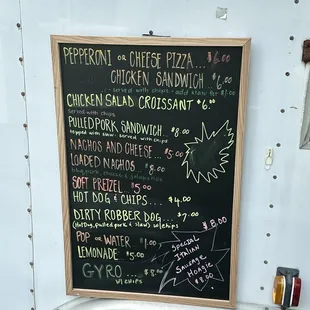 PEPPERONI OR CHEESE PIZZA... $6.00
CHICKEN SANDWICH... $6.00
- served with chips - add slaw for $1.00
CHICKEN SALAD CROISSANT $6.00
served with chips
PULLED PORK SANDWICH... $8.00
topped with slaw - served with chips
NACHOS AND CHEESE... $5.00
LOADED NACHOS... $8.00
SOFT PRETZEL $5.00
HOT DOG & CHIPS... $4.00
DIRTY ROBBER DOG... $7.00
(Hot Dog, pulled pork & slaw) w/chips
POP OR WATER $1.00
LEMONADE $5.00
GYRO... $8.00
w/ chips
$8.00
Special
Italian
Sausage
Hoagie
$8.00